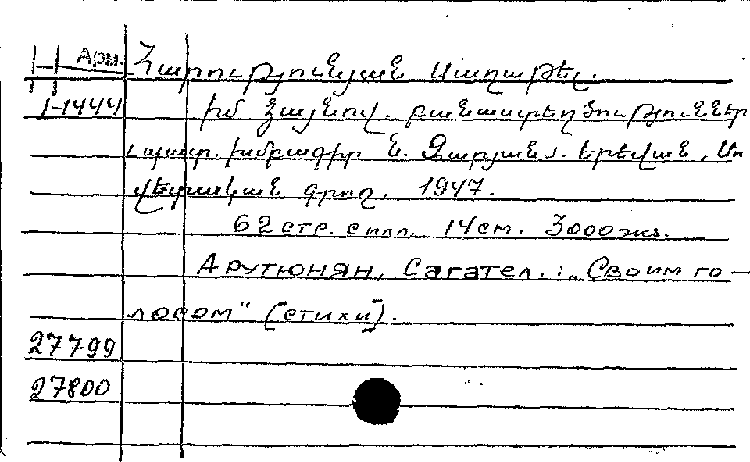 Арм. Հարությունյան Սաղաթել.
1-1444 իմ ձայնով. բանաստեղծություններ
պատ. խմբագիր Ն. Զարյան. Երևան, Սո
վետական գրող, 1947.
62 стр. с илл. 14 см. 3000 экз.
Арутюнян, Сагател.: „Своим го-
лосом" (стихи).
27799
27800